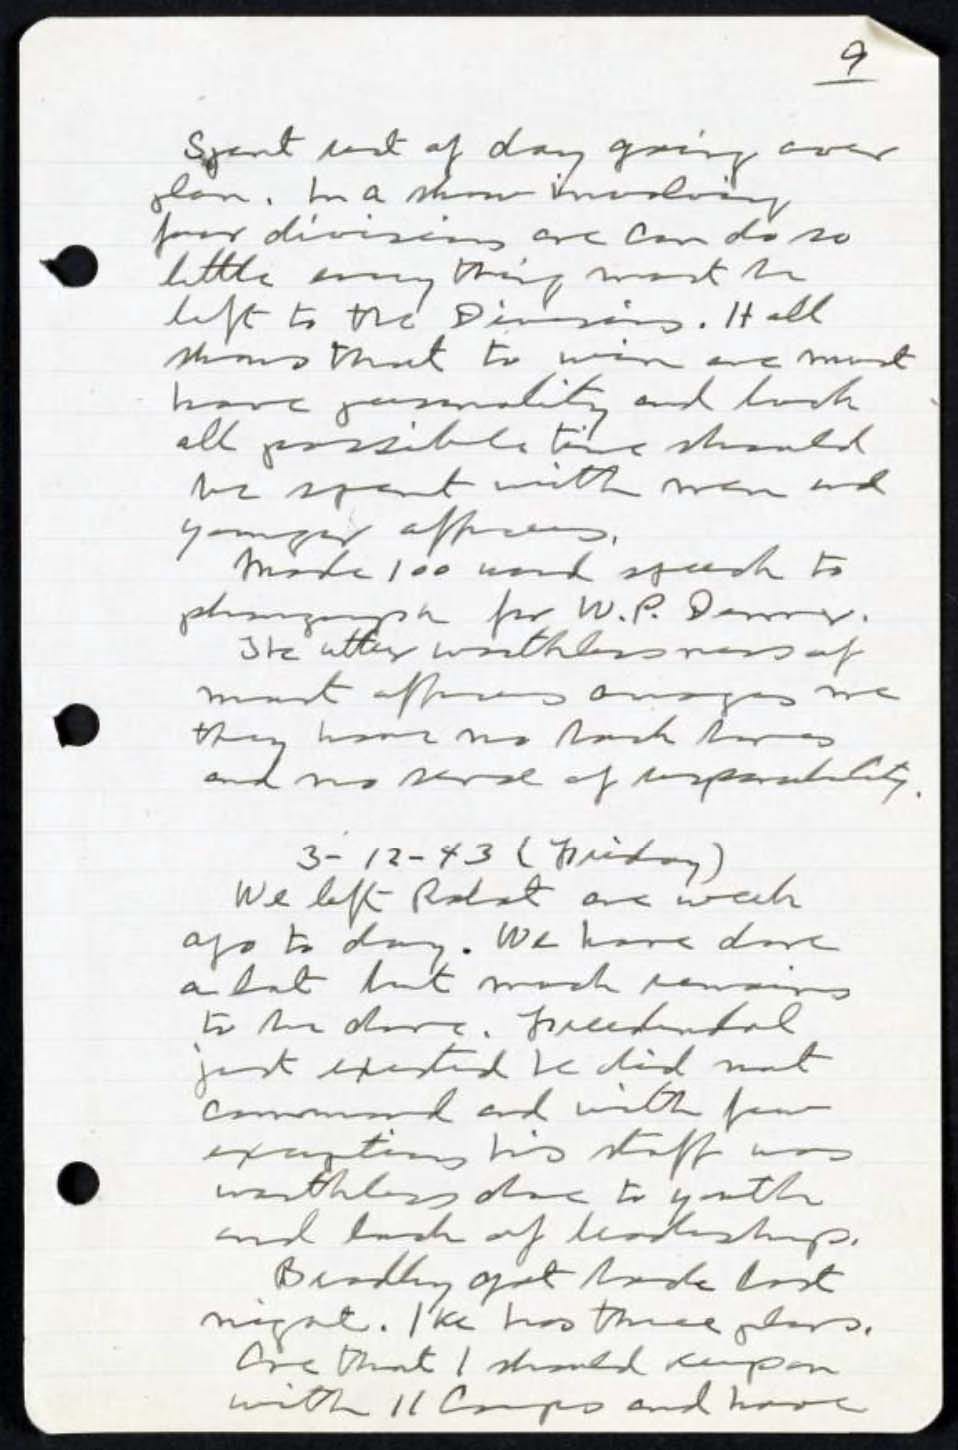 9
Spent rest of day going over
plan. In a show involving
four divisions one can do so
little every thing must be
left to the Divisions. It all
shows that to win one must
have personality and luck
all possible time should
be spent with men and
younger officers.
Made 100 word speech to
for W.P. Dinner.
The utter worthlessness of
most officers me
they have no back bones
and no sense of responsibility.
3-12-43 (Friday)
We left Rabat one week
ago to day. We have done
a lot but much remains
to be done. Freedendal
just existed he did not
command and with few
exceptions his staff was
worthless due to youth
and lack of leadership.
Bradley got back last
night. Ike has three plans.
One that I should keep on
with II Corps and have